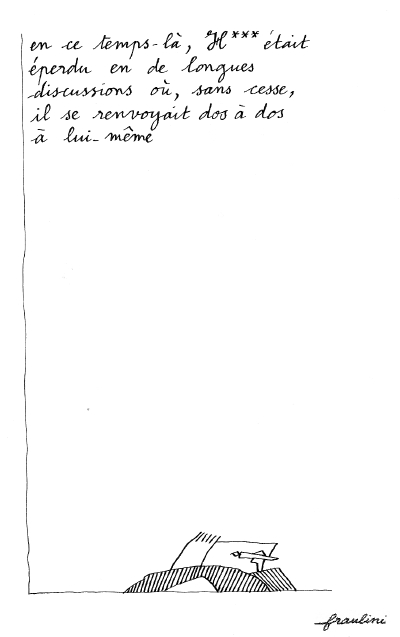 en ce temps-là, H*** était
éperdu en de longues
discussions où, sans cesse,
il se renvoyait dos à dos
à lui-même
fraulini